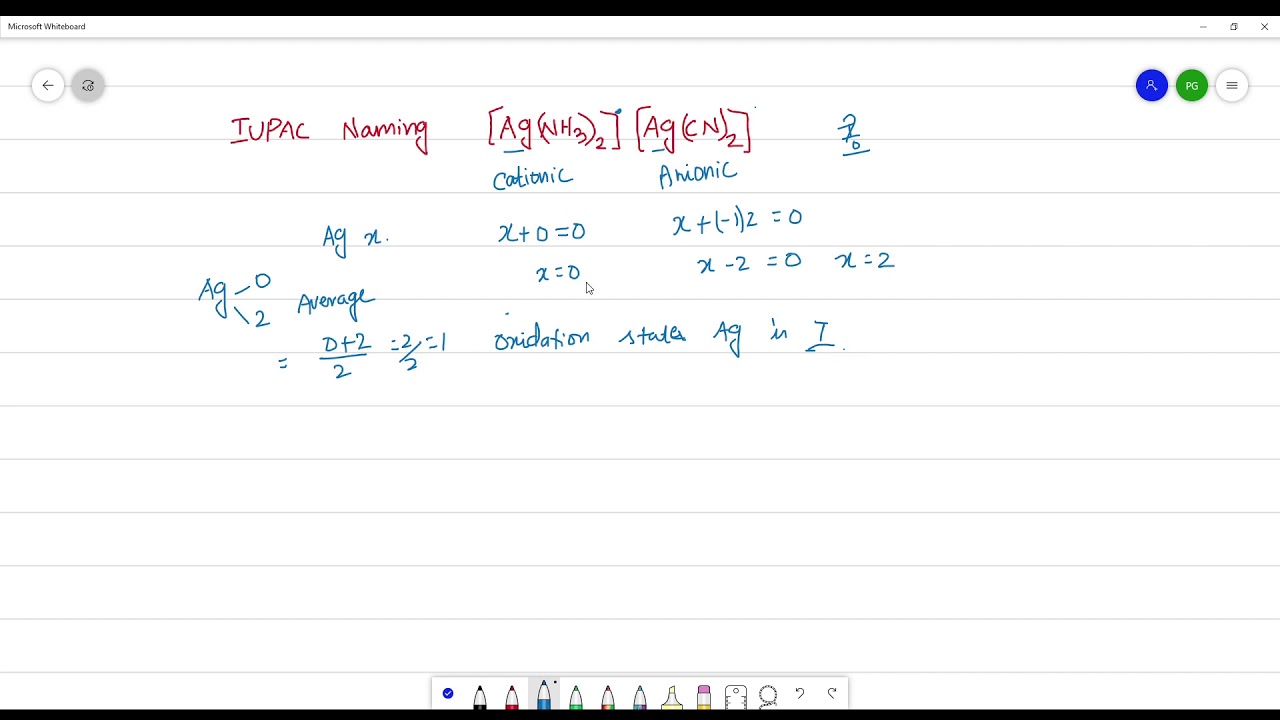 Microsoft Whiteboard
PG
IUPAC Naming [Ag(NH3)2] [Ag(CN)2]
Cationic Anionic
Ag x. x+0=0 x+(-1)2=0
x=0 x-2=0 x=2
Ag 0 2 Average
= 0+2/2 =2/2=1 oxidation states Ag is I.